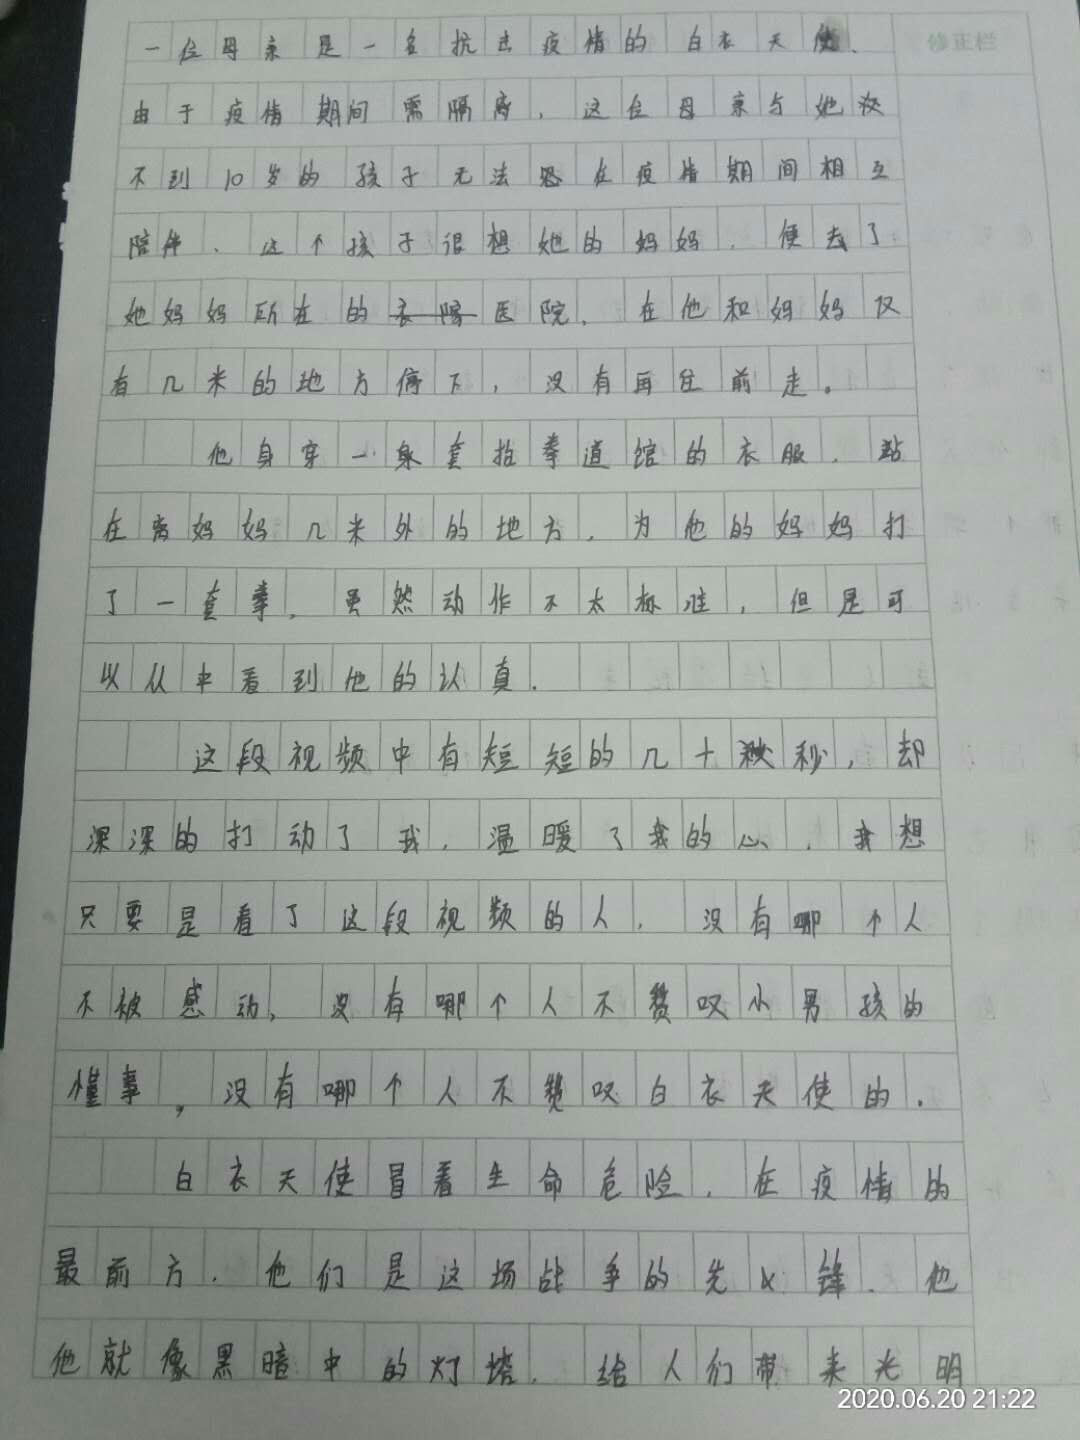 一位母亲是一名抗击疫情的白衣天使、
修正栏
由于疫情期间需隔离,这位母亲与她没
不到10岁的孩子无法在疫情期间相互
陪伴、这个孩子很想她的妈妈.便去了
她妈妈所在的医院.在他和妈妈仅
有几米的地方停下,没有再往前走。
他身穿一身套抬拳道馆的衣服.站
在离妈妈几米外的地方.为他的妈妈打
了一套拳,虽然动作不太标准,但是可
以从中看到他的认真.
这段视频中有短短的几十秒,却
深深的打动了我.温暖了我的心.我想
只要是看了这段视频的人.没有哪个人
不被感动,没有哪个人不赞叹小男孩的
懂事,没有哪个人不赞叹白衣天使的.
白衣天使冒着生命危险.在疫情的
最前方.他们是这场战争的先锋.他
他就像黑暗中的灯塔.给人们带来光明
2020.06.20 21:22